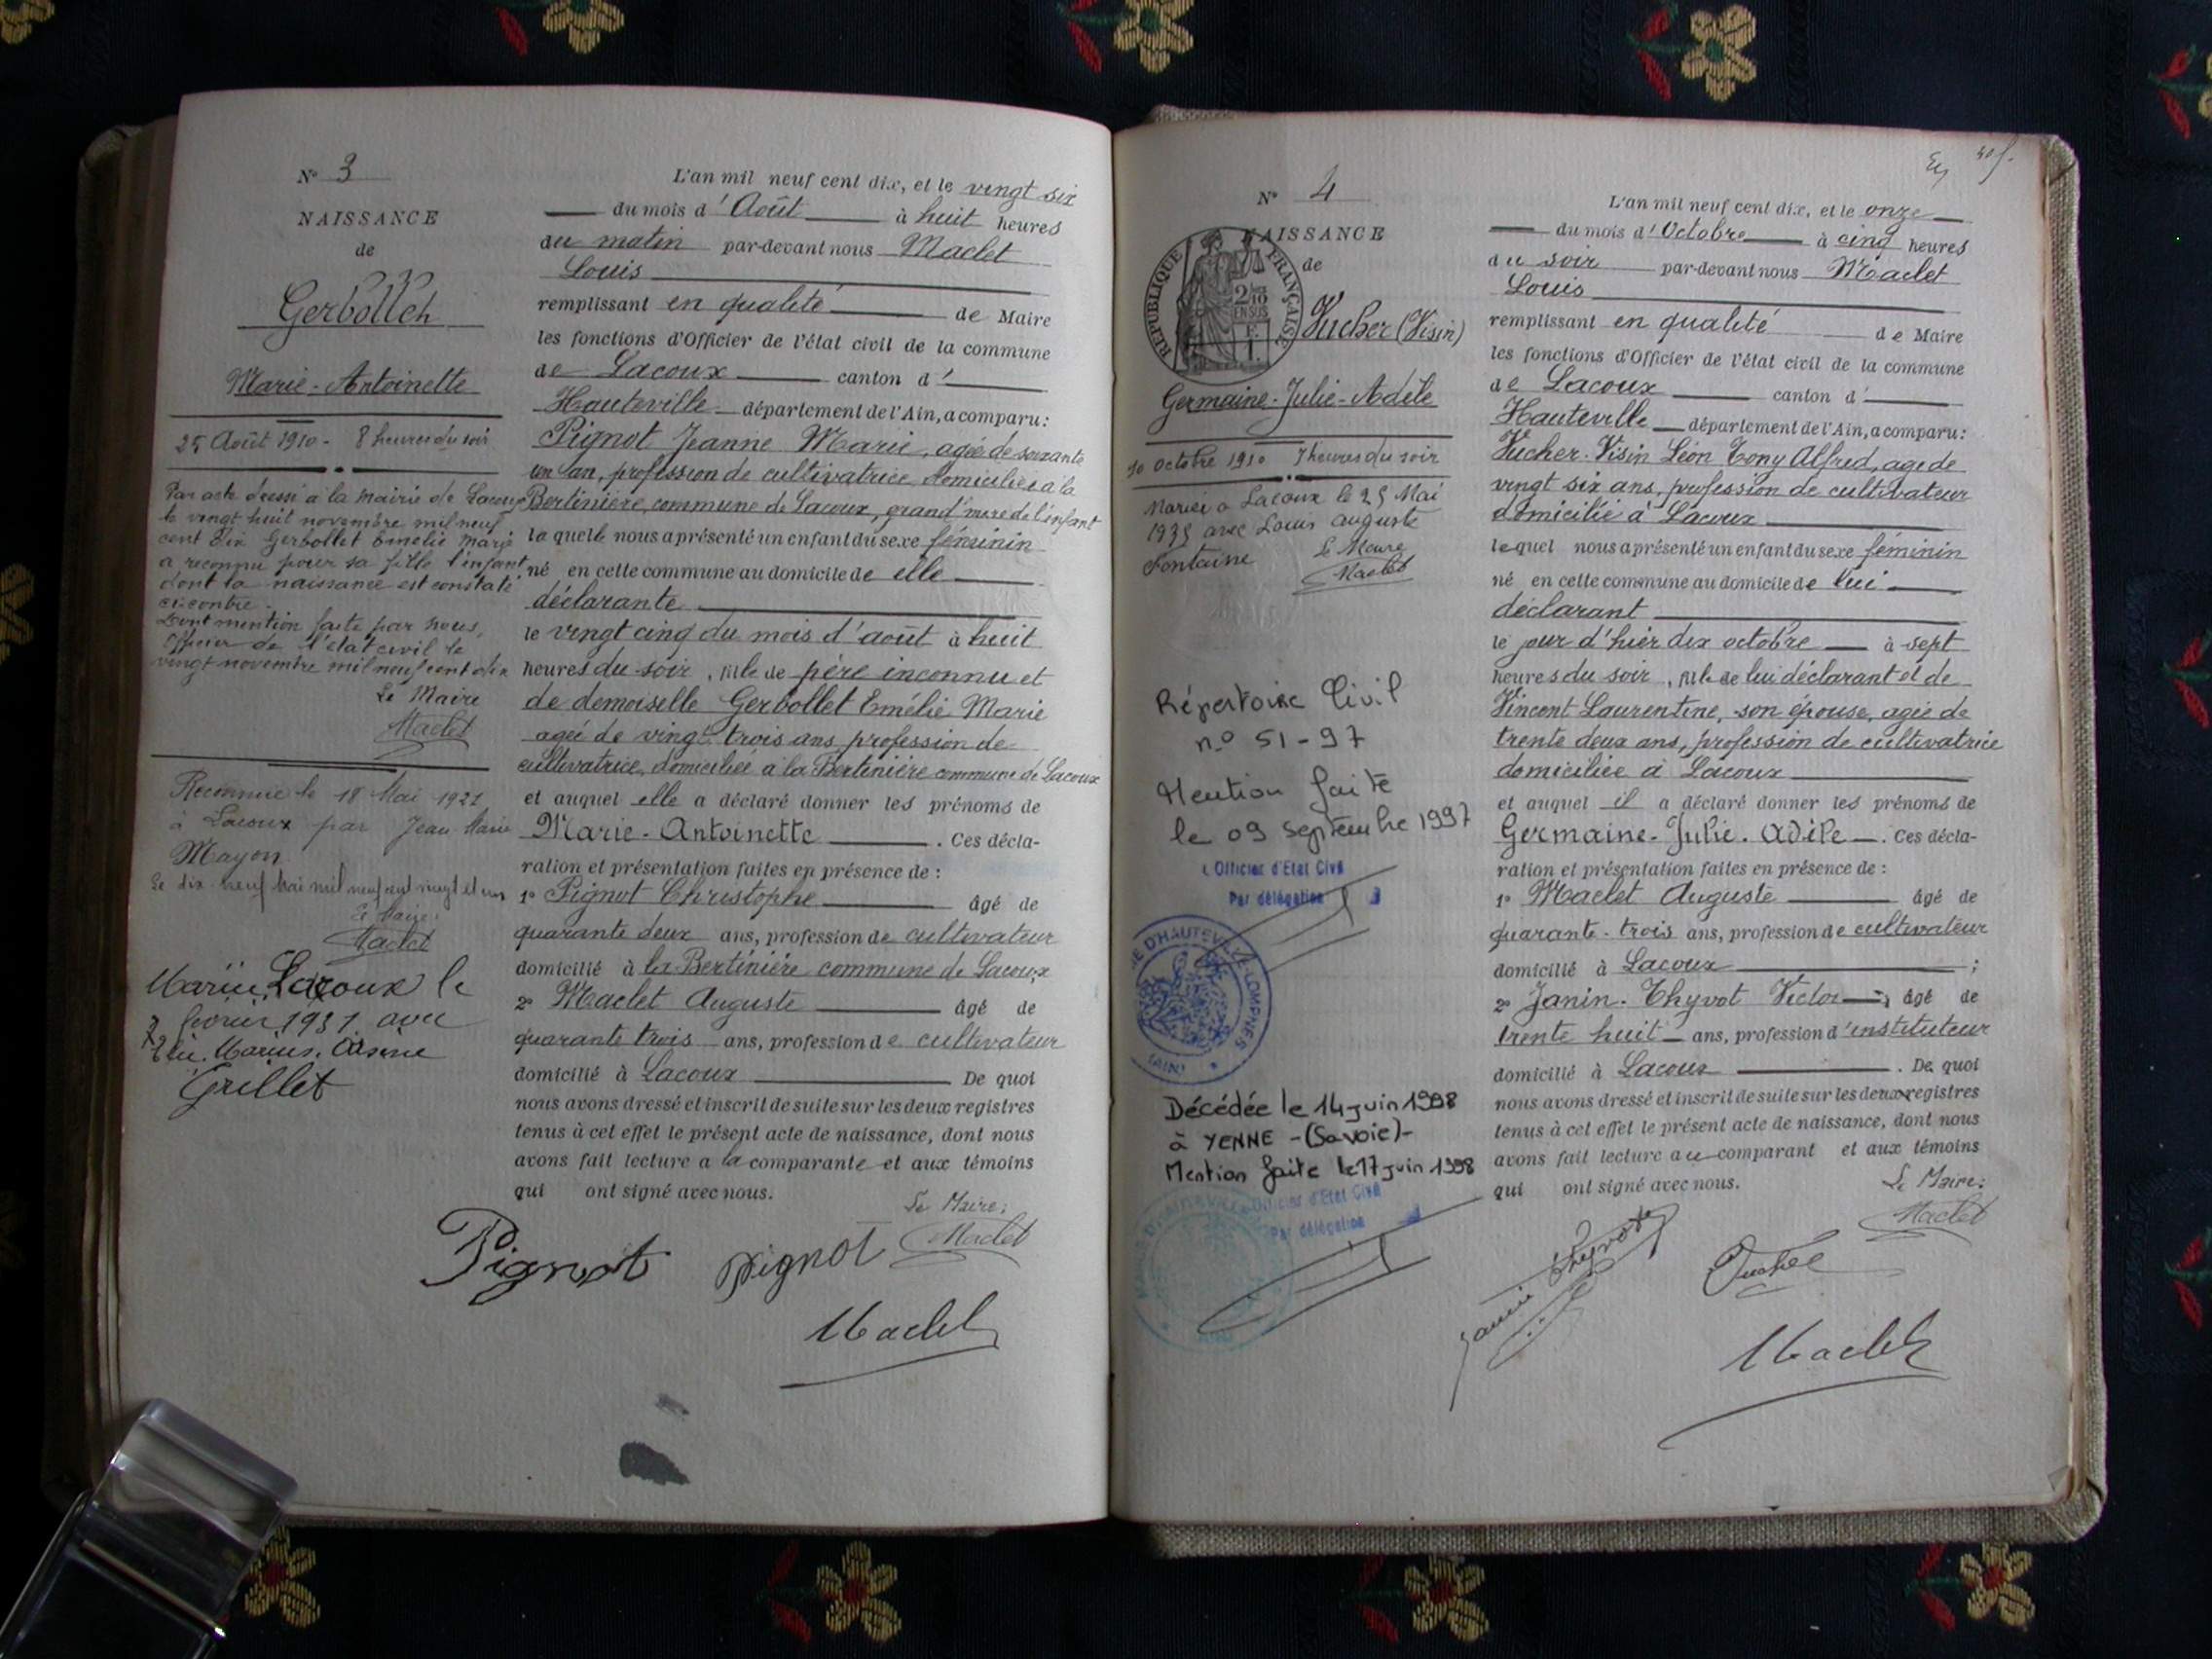 N° 3
NAISSANCE
de
Gerbollet
Marie-Antoinette
25 Août 1910 - 8 heures du soir
Par acte dressé à la mairie de Lacoux
le vingt huit novembre mil neuf
cent dix Gerbollet Emélie Marie
a reconnu pour sa fille l'enfant
dont la naissance est constaté
ci-contre.
Dont mention faite par nous,
Officier de l'état civil le
vingt novembre mil neuf cent dix
Le Maire
Maclet
Reconnue le 18 Mai 1921
à Lacoux par Jean Marie
Mayon
Le dix neuf Mai mil neuf cent vingt et un
Le Maire:
Maclet
Mariée Lacoux le
février 1931 avec
Marius
Grillet
L'an mil neuf cent dix, et le vingt six
du mois d'Août à huit heures
du matin par-devant nous Maclet
Louis
remplissant en qualité de Maire
les fonctions d'Officier de l'état civil de la commune
de Lacoux canton d'
Hauteville département de l'Ain, a comparu:
Pignot Jeanne Marie, agée de soixante
un an, profession de cultivatrice domiciliée à la
Bertinière commune de Lacoux, grand'mère de l'enfant
la quelle nous a présenté un enfant du sexe féminin
né en cette commune au domicile de elle
déclarante
le vingt cinq du mois d'août à huit
heures du soir, fille de père inconnu et
de demoiselle Gerbollet Emélie Marie
agée de vingt trois ans profession de
cultivatrice, domiciliée à la Bertinière commune de Lacoux
et auquel elle a déclaré donner les prénoms de
Marie-Antoinette. Ces décla-
ration et présentation faites en présence de :
1° Pignot Christophe âgé de
quarante deux ans, profession de cultivateur
domicilié à la Bertinière commune de Lacoux
2° Maclet Auguste âgé de
quarante trois ans, profession de cultivateur
domicilié à Lacoux De quoi
nous avons dressé et inscrit de suite sur les deux registres
tenus à cet effet le présent acte de naissance, dont nous
avons fait lecture a la comparante et aux témoins
qui ont signé avec nous.
Le Maire:
Maclet
Pignot pignot
Maclet
40
N° 4
NAISSANCE
de
RÉPUBLIQUE FRANÇAISE
Vucher (Visin)
Germaine-Julie-Adèle
10 octobre 1910 7 heures du soir
Mariée à Lacoux le 25 Mai
1935 avec Louis Auguste
Fontaine
Le Maire
Maclet
Répertoire Civil
n° 51-97
Mention faite
le 09 septembre 1997
L'Officier d'Etat Civil
Par délégation
MAIRIE D'HAUTEVILLE-LOMPNES
(AIN)
Décédée le 14 juin 1998
à YENNE -(Savoie)-
Mention faite le 17 juin 1998
Officier d'Etat Civil
Par délégation
L'an mil neuf cent dix, et le onze
du mois d'Octobre à cinq heures
du soir par-devant nous Maclet
Louis
remplissant en qualité de Maire
les fonctions d'Officier de l'état civil de la commune
de Lacoux canton d'
Hauteville département de l'Ain, a comparu:
Vucher-Visin Léon Tony Alfred, agé de
vingt six ans, profession de cultivateur
domicilié à Lacoux
lequel nous a présenté un enfant du sexe féminin
né en cette commune au domicile de lui
déclarant
le jour d'hier dix octobre à sept
heures du soir, fille de lui déclarant et de
Vincent Laurentine, son épouse, agée de
trente deux ans, profession de cultivatrice
domiciliée à Lacoux
et auquel il a déclaré donner les prénoms de
Germaine-Julie-Adèle. Ces décla-
ration et présentation faites en présence de :
1° Maclet Auguste âgé de
quarante-trois ans, profession de cultivateur
domicilié à Lacoux ;
2° Janin-Thyvot Victor, âgé de
trente huit ans, profession d'instituteur
domicilié à Lacoux. De quoi
nous avons dressé et inscrit de suite sur les deux registres
tenus à cet effet le présent acte de naissance, dont nous
avons fait lecture au comparant et aux témoins
qui ont signé avec nous.
Le Maire:
Maclet
Janin Thyvot
Maclet